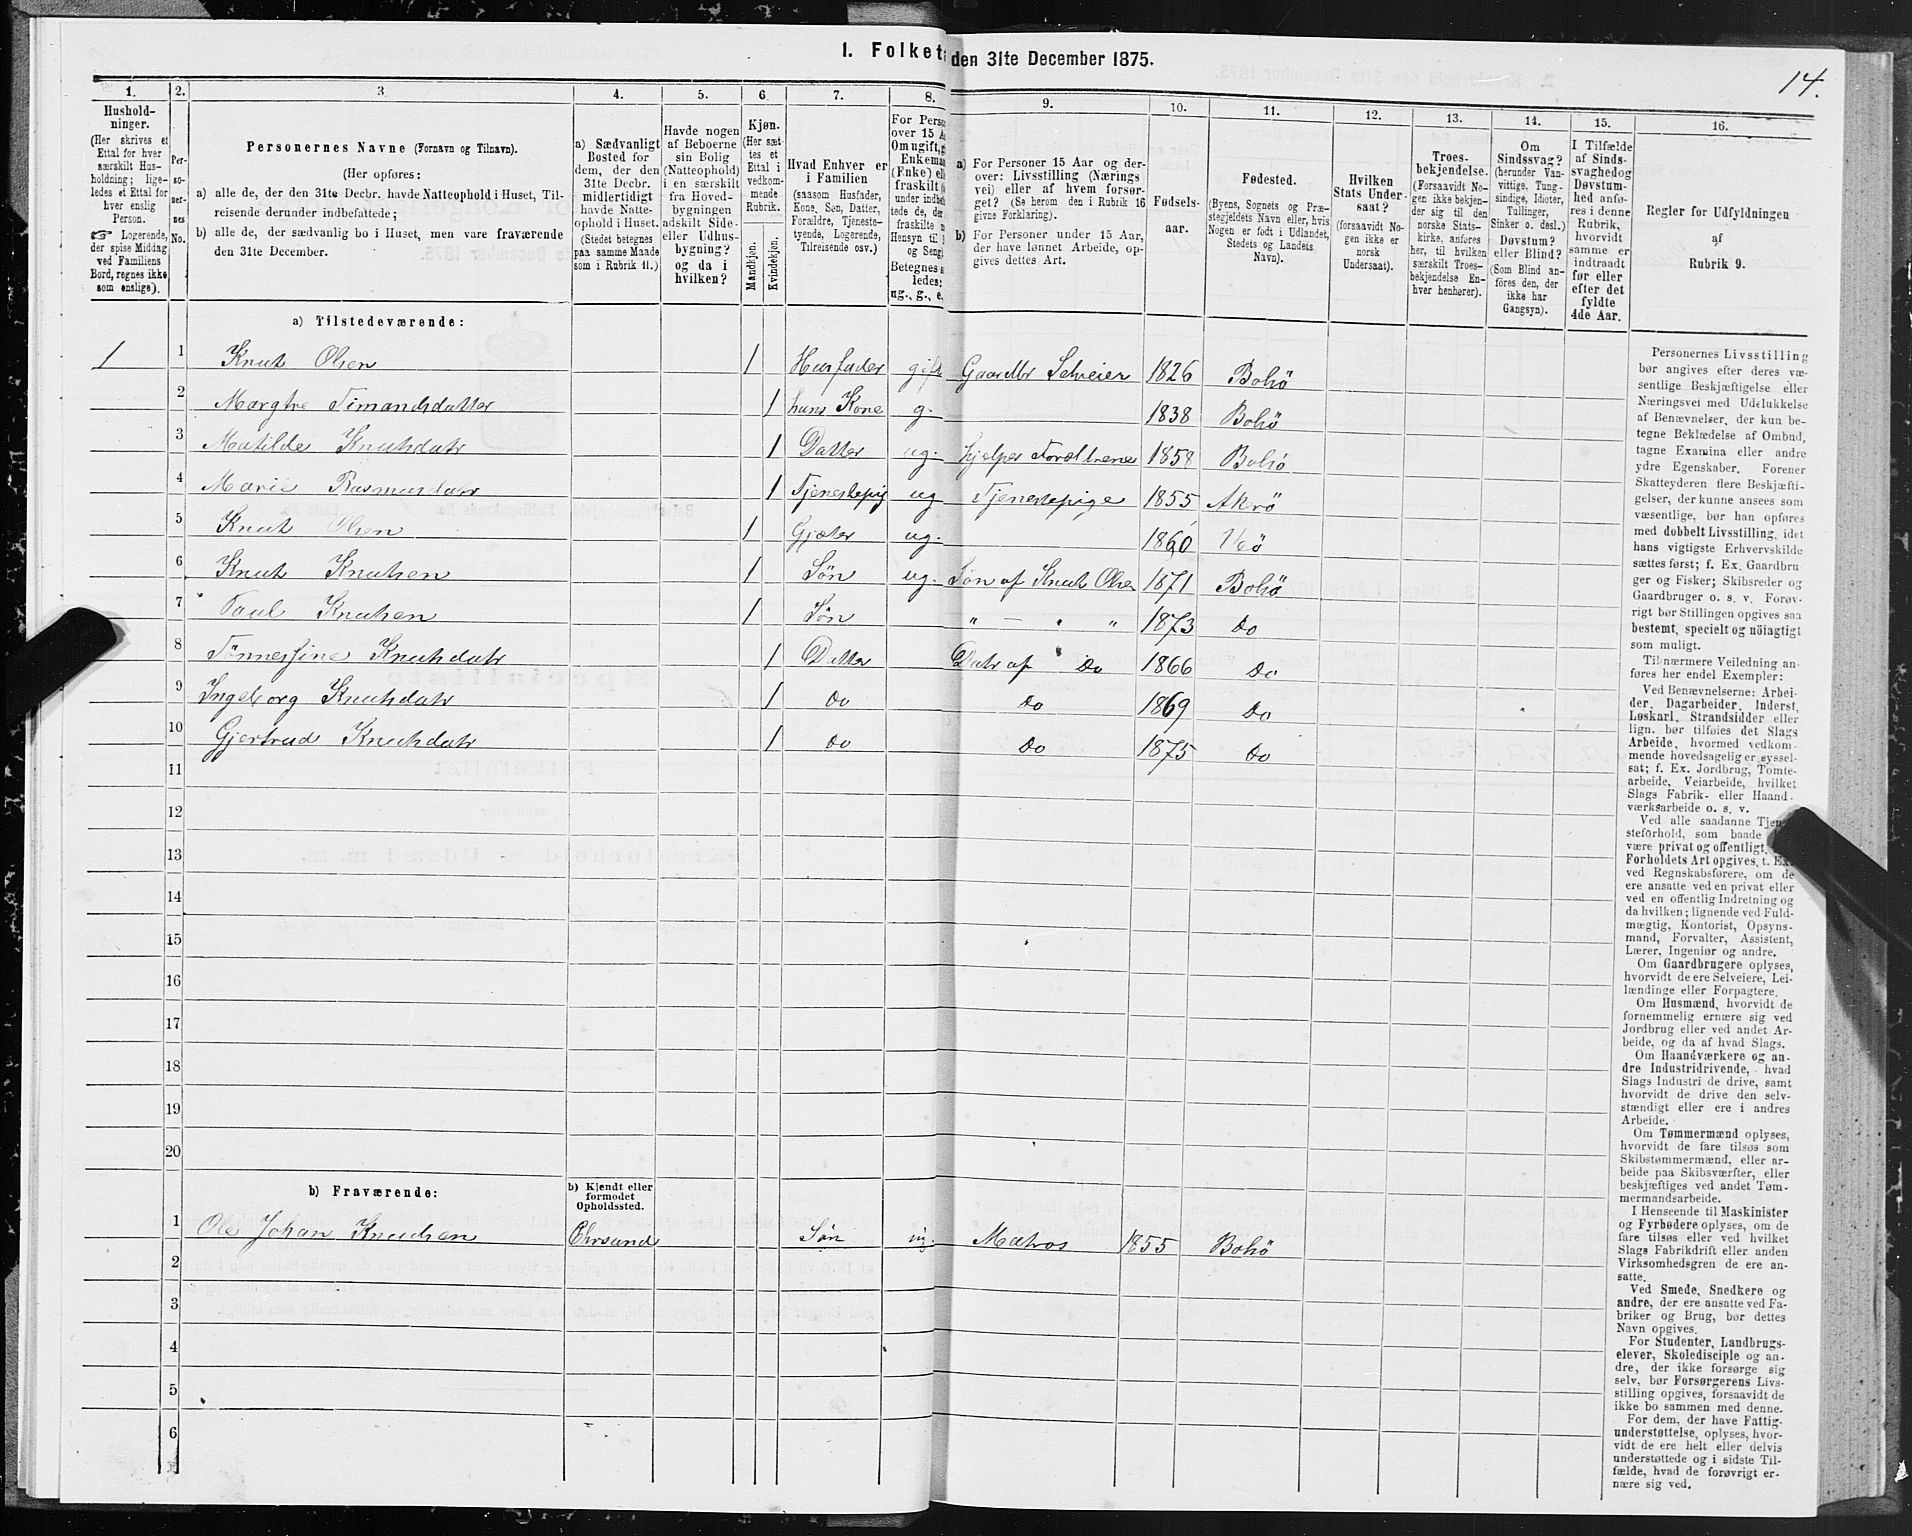 1. Folket
den 31te December 1875.
14.
1.
2.
3
4.
5.
6
7.
8.
9.
10.
11.
12.
13.
14.
15.
16.
Hushold-
ninger.
(Her skrives et
Ettal for hver
særskilt Hus-
holdning; lige-
ledes et Ettal for
hver enslig
Person.
☞ Logerende,
der spise Middag
ved Familiens
Bord, regnes ikke
som enslige).
Per-
so-
ner-
nes
No.
Personernes Navne (Fornavn og Tilnavn).
(Her opføres:
a) alle de, der den 31te Decbr. havde Natteophold i Huset, Til-
reisende derunder indbefattede;
b) alle de, der sædvanlig bo i Huset, men vare fraværende
den 31te December.
a) Sædvanligt
Bosted for
dem, der den
31te Decbr.
midlertidigt
havde Natte-
ophold i Huset.
(Stedet betegnes
paa samme Maade
som i Rubrik 11.)
Havde nogen
af Beboerne
sin Bolig
(Natteophold)
i en særskilt
fra Hoved-
bygningen
adskilt Side-
eller Udhus-
bygning?
og da i
hvilken?
Kjøn.
(Her sæt-
tes et
Ettal i
vedkom-
mende
Rubrik.
Mandkjøn.
Kvindekjøn.
Hvad Enhver er
i Familien
(saasom Husfader,
Kone, Søn, Datter,
Forældre, Tjeneste-
tyende, Logerende,
Tilreisende osv.)
For Person
over 15 A
Om ugift, g
Enkema
(Enke) elle
fraskilt
under indbe
tede de, der
fraskilte
Hensyn til
og Seng
Betegnes s
ledes:
ug., g., e.
a) For Personer 15 Aar og der-
over: Livsstilling (Nærings
vei) eller af hvem forsør-
get? (Se herom den i Rubrik 16
givne Forklaring).
b) For Personer under 15 Aar,
der have lønnet Arbeide, op-
gives dettes Art.
Fødsels-
aar.
Fødested.
(Byens, Sognets og Præ-
stegjeldets Navn eller, hvis
Nogen er født i Udlandet,
Stedets og Landets
Navn).
Hvilken
Stats Under-
saat?
(forsaavidt No-
gen ikke er
norsk
Undersaat).
Troes-
bekjendelse.
(Forsaavidt No-
gen ikke bekjen-
der sig til den
norske Stats-
kirke, anføres
her, til hvilken
særskilt Troes-
bekjendelse En-
hver henhører).
Om
Sindssvag?
(herunder Van-
vittige, Tung-
sindige, Idioter,
Tullinger,
Sinker o. desl.)
Døvstum?
eller Blind?
(Som Blind an-
føres den, der
ikke har
Gangsyn).
I Tilfælde
af Sinds-
svaghedog
Døvstum-
hed anfø-
res i denne
Rubrik,
hvorvidt
samme er
indtraadt
før eller
efter det
fyldte
4de Aar.
Regler for Udfyldningen
af
Rubrik 9.
a) Tilstedeværende:
1 1 Knut Olsen 1 Husfader gift Gaardbr Selveier 1826 Bolsö
2 Margtre Timandsdatter 1 hans Kone g. 1838 Bolsö
3 Matilde Knutsdatr 1 Datter ug. hjelper Forældrene 1858 Bolsö
4 Marie Rasmusdatr 1 Tjenestepig ug Tjenestepige 1855 Akrö
5 Knut Olsen 1 Gjæter ug. 1860 Veö
6 Knut Knutsen 1 Søn ug. Søn af Knut Olse 1871 Bolsö
7 Paul Knutsen 1 Søn „ — „ „ 1873 Do
8 Tönnesfine Knutsdatr 1 Datter Datr af Do 1866 Do
9 Ingeborg Knutsdatr 1 Do Do 1869 Do
10 Gjertrud Knutsdatr 1 Do Do 1875 Do
11
12
13
14
15
16
17
18
19
20
b) Fraværende:
b) Kjendt eller
formodet
Opholdssted.
1 Ole Johan Knudsen Chrsund Søn ug. Matros 1855 Bolsö
2
3
4
5
6
Personernes Livsstilling
bør angives efter deres væ-
sentlige Beskjæftigelse eller
Næringsvei med Udelukkelse
af Benævnelser, der kun be-
tegne Beklædelse af Ombud,
tagne Examina eller andre
ydre Egenskaber. Forener
Skatteyderen flere Beskjæfti-
gelser, der kunne ansees som
væsentlige, bør han opføres
med dobbelt Livsstilling, idet
hans vigtigste Erhvervskilde
sættes først; f. Ex. Gaardbru-
ger og Fisker; Skibsreder og
Gaardbruger o. s. v. Forøv-
rigt bør Stillingen opgives saa
bestemt, specielt og nöiagtigt
som muligt.
Til nærmere Veiledning an-
føres her endel Exempler:
Ved Benævnelserne: Arbei-
der, Dagarbeider, Inderst,
Løskarl, Strandsidder eller
lign. bør tilføies det Slags
Arbeide, hvormed vedkom-
mende hovedsagelig er syssel-
sat; f. Ex. Jordbrug, Tomte-
arbeide, Veiarbeide, hvilket
Slags Fabrik- eller Haand-
værksarbeide o. s. v.
Ved alle saadanne Tjen-
steforhold, som baade
være privat og offentligt,
Forholdets Art opgives, t. Ex.
ved Regnskabsførere, om de
ere ansatte ved en privat eller
ved en offentlig Indretning og
da hvilken; lignende ved Fuld-
mægtig, Kontorist, Opsyns-
mand, Forvalter, Assistent,
Lærer, Ingeniør og andre.
Om Gaardbrugere oplyses,
hvorvidt de ere Selveiere, Lei-
lændinge eller Forpagtere.
Om Husmænd, hvorvidt de
fornemmelig ernære sig ved
Jordbrug eller ved andet Ar-
beide, og da af hvad Slags.
Om Haandværkere og an-
dre Industridrivende, hvad
Slags Industri de drive, samt
hvorvidt de drive den selv-
stændigt eller ere i andres
Arbeide.
Om Tømmermænd oplyses,
hvorvidt de fare tilsøs som
Skibstømmermænd, eller ar-
beide paa Skibsværfter, eller
beskjæftiges ved andet Tøm-
mermandsarbeide.
I Henseende til Maskinister
og Fyrbødere oplyses, om de
fare tilsøs eller ved hvilket
Slags Fabrikdrift eller anden
Virksomhedsgren de ere an-
satte.
Ved Smede, Snedkere og
andre, der ere ansatte ved Fa-
briker og Brug, bør dettes
Navn opgives.
For Studenter, Landbrugs-
elever, Skoledisciple og an-
dre, der ikke forsørge sig
selv, bør Forsørgerens Livs-
stilling opgives, forsaavidt de
ikke bo sammen med denne.
For dem, der have Fattig-
understøttelse, oplyses, hvor-
vidt de ere helt eller delvis
understøttede og i sidste Til-
fælde, hvad de forøvrigt er-
nære sig ved.